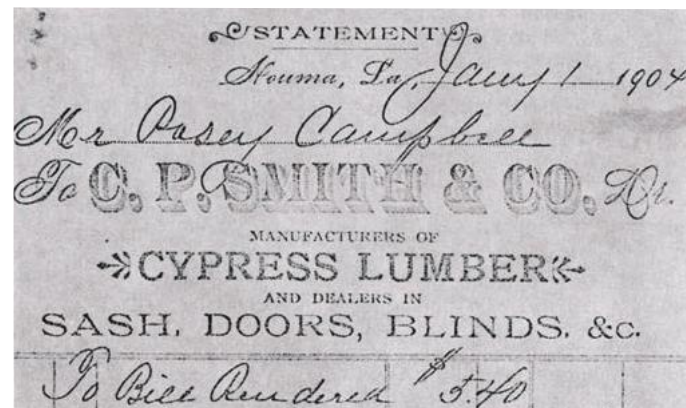 STATEMENT
Houma, La, Jany 1 1904
Mr Posey Campbell
To C. P. SMITH & CO. Dr.
MANUFACTURERS OF
CYPRESS LUMBER
AND DEALERS IN
SASH, DOORS, BLINDS, &c.
To Bill Rendered $5.40